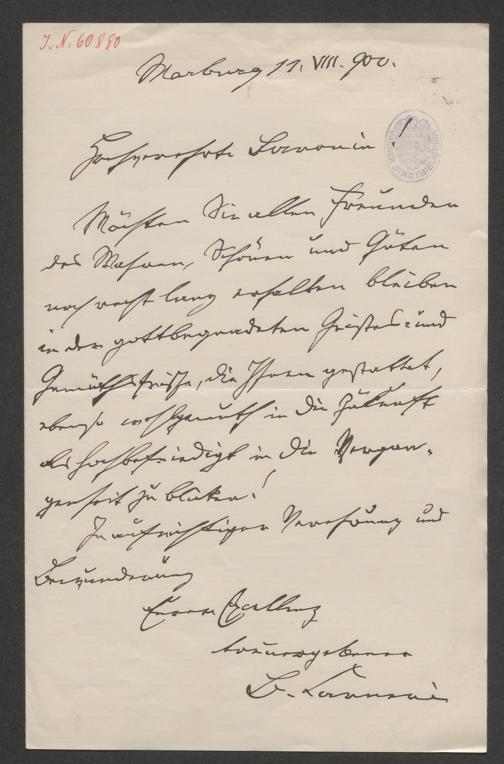 J.N. 60880
Marburg 11. VIII. 900.
Hochverehrte Baronin!
Möchten Sie allen Freunden
des Wahren, Schönen und Guten
noch recht lang erhalten bleiben
in der gottbegnadeten Geistes- und
Gemüthsfrische, die Ihnen gestattet,
ebenso wohlgemuth in die Zukunft
als hochbefriedigt in die Vergan-
genheit zu blicken!
In aufrichtiger Verehrung und
Bewunderung
Eurer Excellenz
treuergebener
B. Carneri